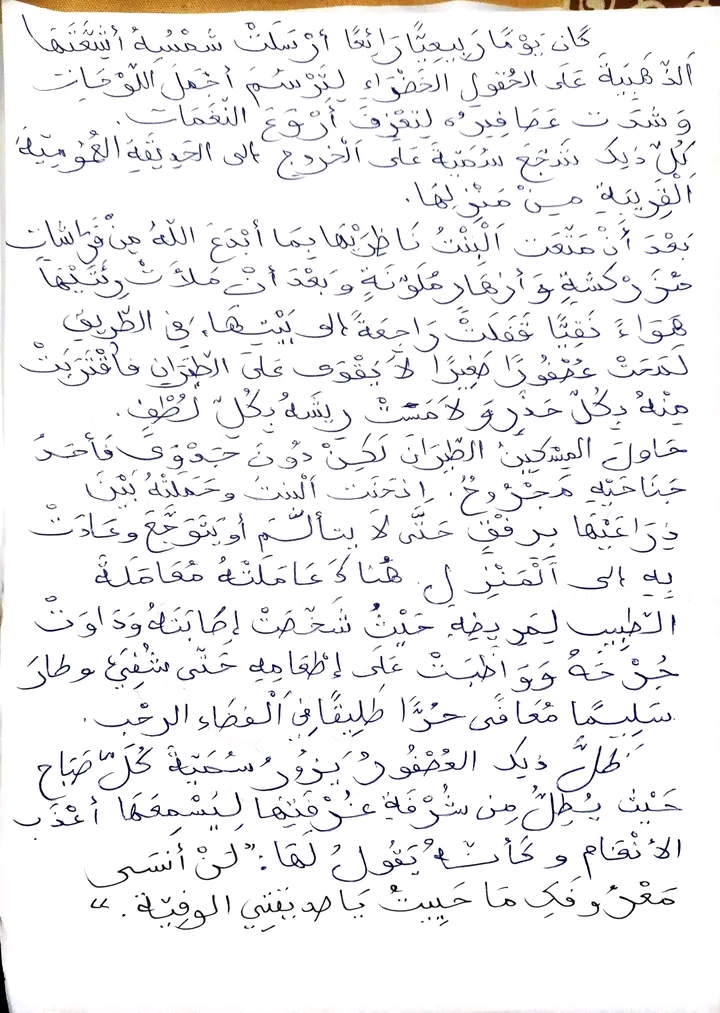 كان يَوْمًا رَبِيعِيًّا رَائِعًا أرْسَلَتْ شَمْسُهُ أشِعَّتَهَا
الذّهَبِيَةَ عَلَى الحُقولِ الخَضْرَاءِ لِتَرْسُمَ أجْمَلَ اللّوْحَاتِ
وَشَدَت عَصَافِيرُه لِتَعْزِفَ أَرْوَعَ النّغَمَات.
كُلّ ذَلِكَ شَجّعَ سُمَيّةَ عَلَى الْخروج إلى الحَدِيقَةِ العُمُومِيّةِ
الْقَرِيبَةِ مِنْ مَنْزِلِهَا.
بَعْدَ أَنْ مَتّعَت الْبِنْتُ نَاظِرَيْهَا بِمَا أبْدَعَ اللّهُ مِنْ فَرَاشَاتٍ
مُزَرْكَشَةٍ وَأزهَارٍ مُلَوّنَةٍ وَبَعْدَ أنْ مَلأَتْ رِئَتَيْهَا
هَوَاءً نَقِيًّا قَفَلَتْ رَاجِعَةً إلى بَيْتِهَا، في الطّرِيقِ
لَمَحَتْ عُصْفُورًا صَغِيرًا لاَ يَقْوَى عَلَى الطّيَرَانِ فاقْتَرَبَتْ
مِنْهُ بِكُلّ حَذَرٍ وَلاَمَسَتْ رِيشَهُ بِكُلّ لُطْفٍ.
حَاولَ المِسْكِينُ الطّيَرَانَ لَكِنْ دُونَ جَدْوَى فَأحَدُ
جَنَاحَيْهِ مَجْرُوحٌ. اِنْحَنَت الْبِنتُ وحَمَلَتْهُ بَيْنَ
ذِرَاعَيْهَا بِرِفْقٍ حَتَّى لاَ يتألّمَ أو يَتَوَجَّعَ وعَادَتْ
بِهِ إلى الْمَنْزِلِ. هُنَاكَ عَامَلَتْهُ مُعَامَلَةَ
الطّبِيبِ لِمَرِيضِهِ حَيْثُ شَخّصَتْ إصَابَتَهُ وَدَاوَتْ
جُرْحَهُ وَوَاظَبَتْ عَلَى إطْعَامِهِ حَتّى شُفِيَ وطارَ
سَلِيمًا مُعَافًى حُرًّا طَلِيقًا فِي الْفضَاءِ الرحْب.
ظَلَّ ذلِكَ العُصْفُورُ يَزُورُ سُمَيّةَ كُلّ صَبَاحٍ
حَيْث يُطِلُّ مِن شُرْفَةِ غُرْفَتِهَا لِيُسْمِعَهَا أعْذَبَ
الأنْغَامِ وكأنّهُ يَقُولُ لَهَا: "لَنْ أنسَى
مَعْرُوفَكِ مَا حَيِيتُ يَا صدِيقَتِي الوفِيّة."